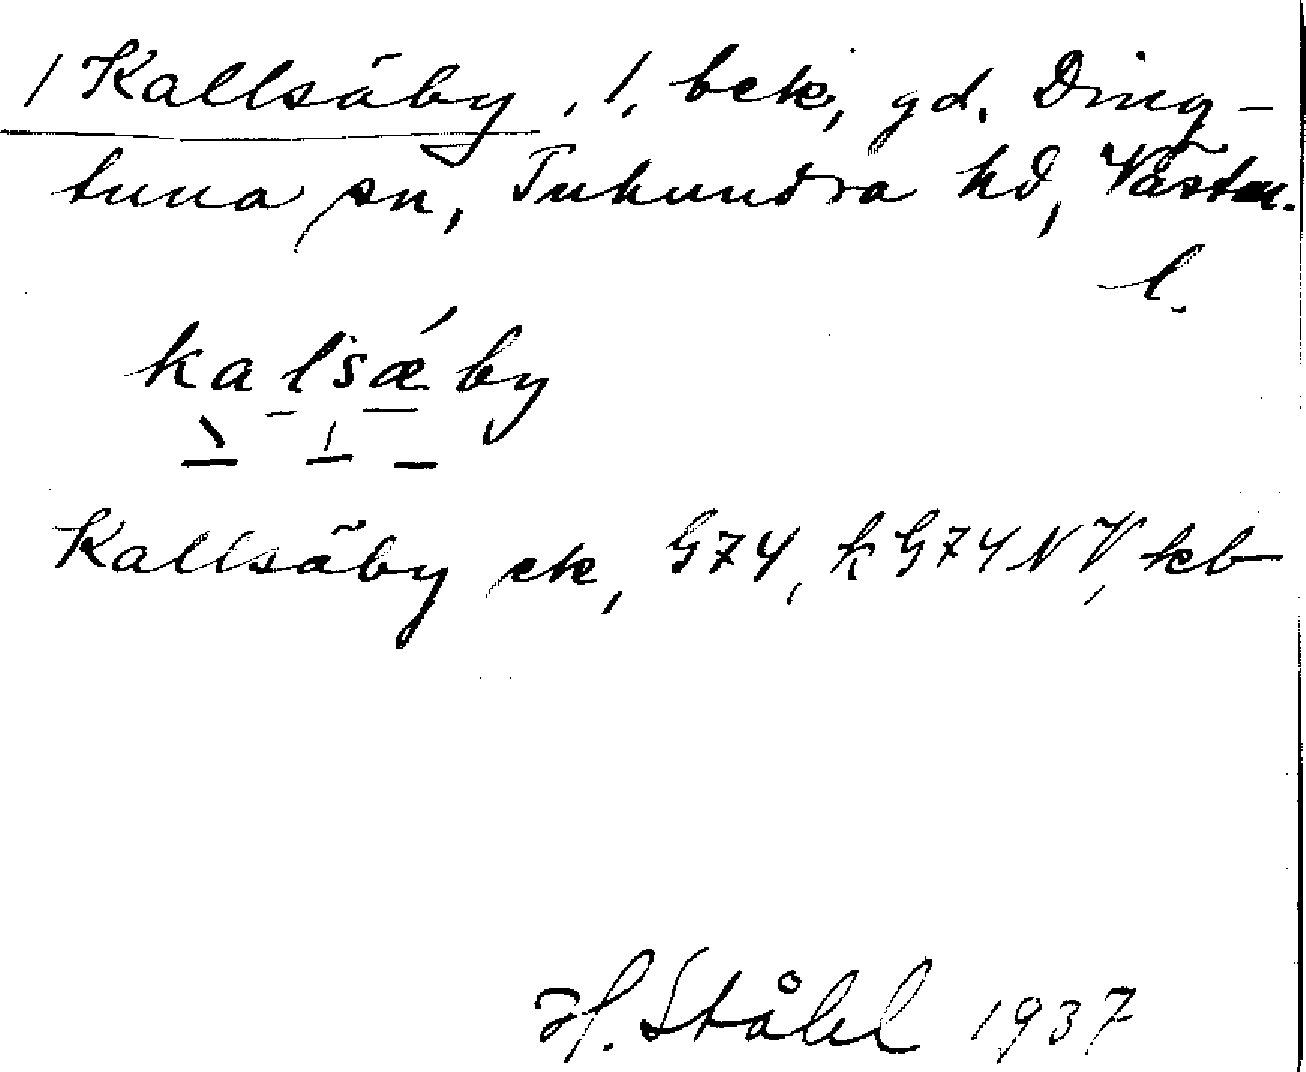 / Kallsäby, 1, bek, gd. Ding-
tuna sn, Tuhundra hd, Västm.
l.
kalsǽby
Kallsäby ek, G74, k G74 NV, kb
H. Ståhl 1937